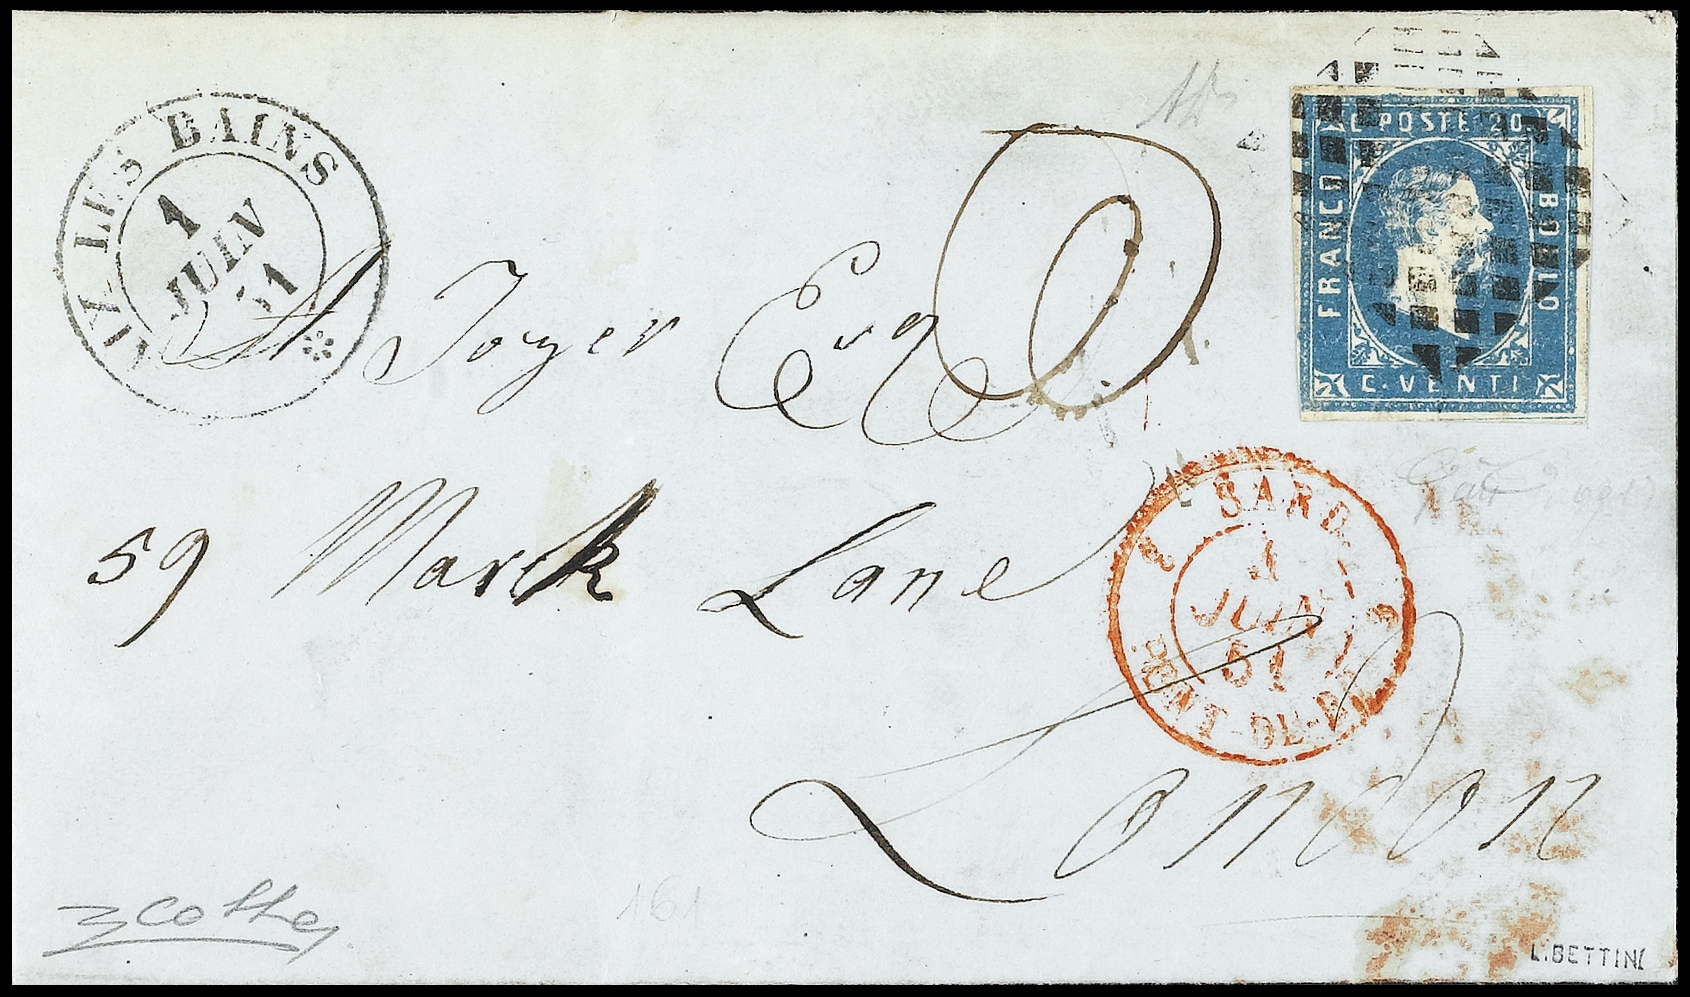 AIX LES BAINS
1
JUIN
51
C. POSTE 20
FRANCO
BOLLO
C. VENTI
Joyer Esqr
59 Mark Lane
London
SARD.
1
JUIN
51
PONT-DE-B
161
L. BETTINI